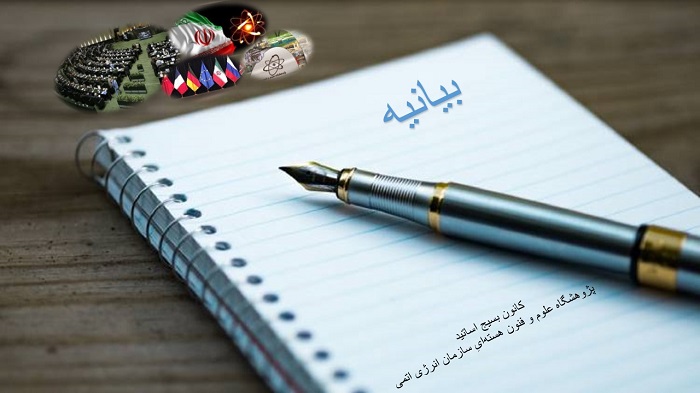 بیانیه
کانون بسیج اساتید
پژوهشگاه علوم و فنون هسته‌ای سازمان انرژی اتمی